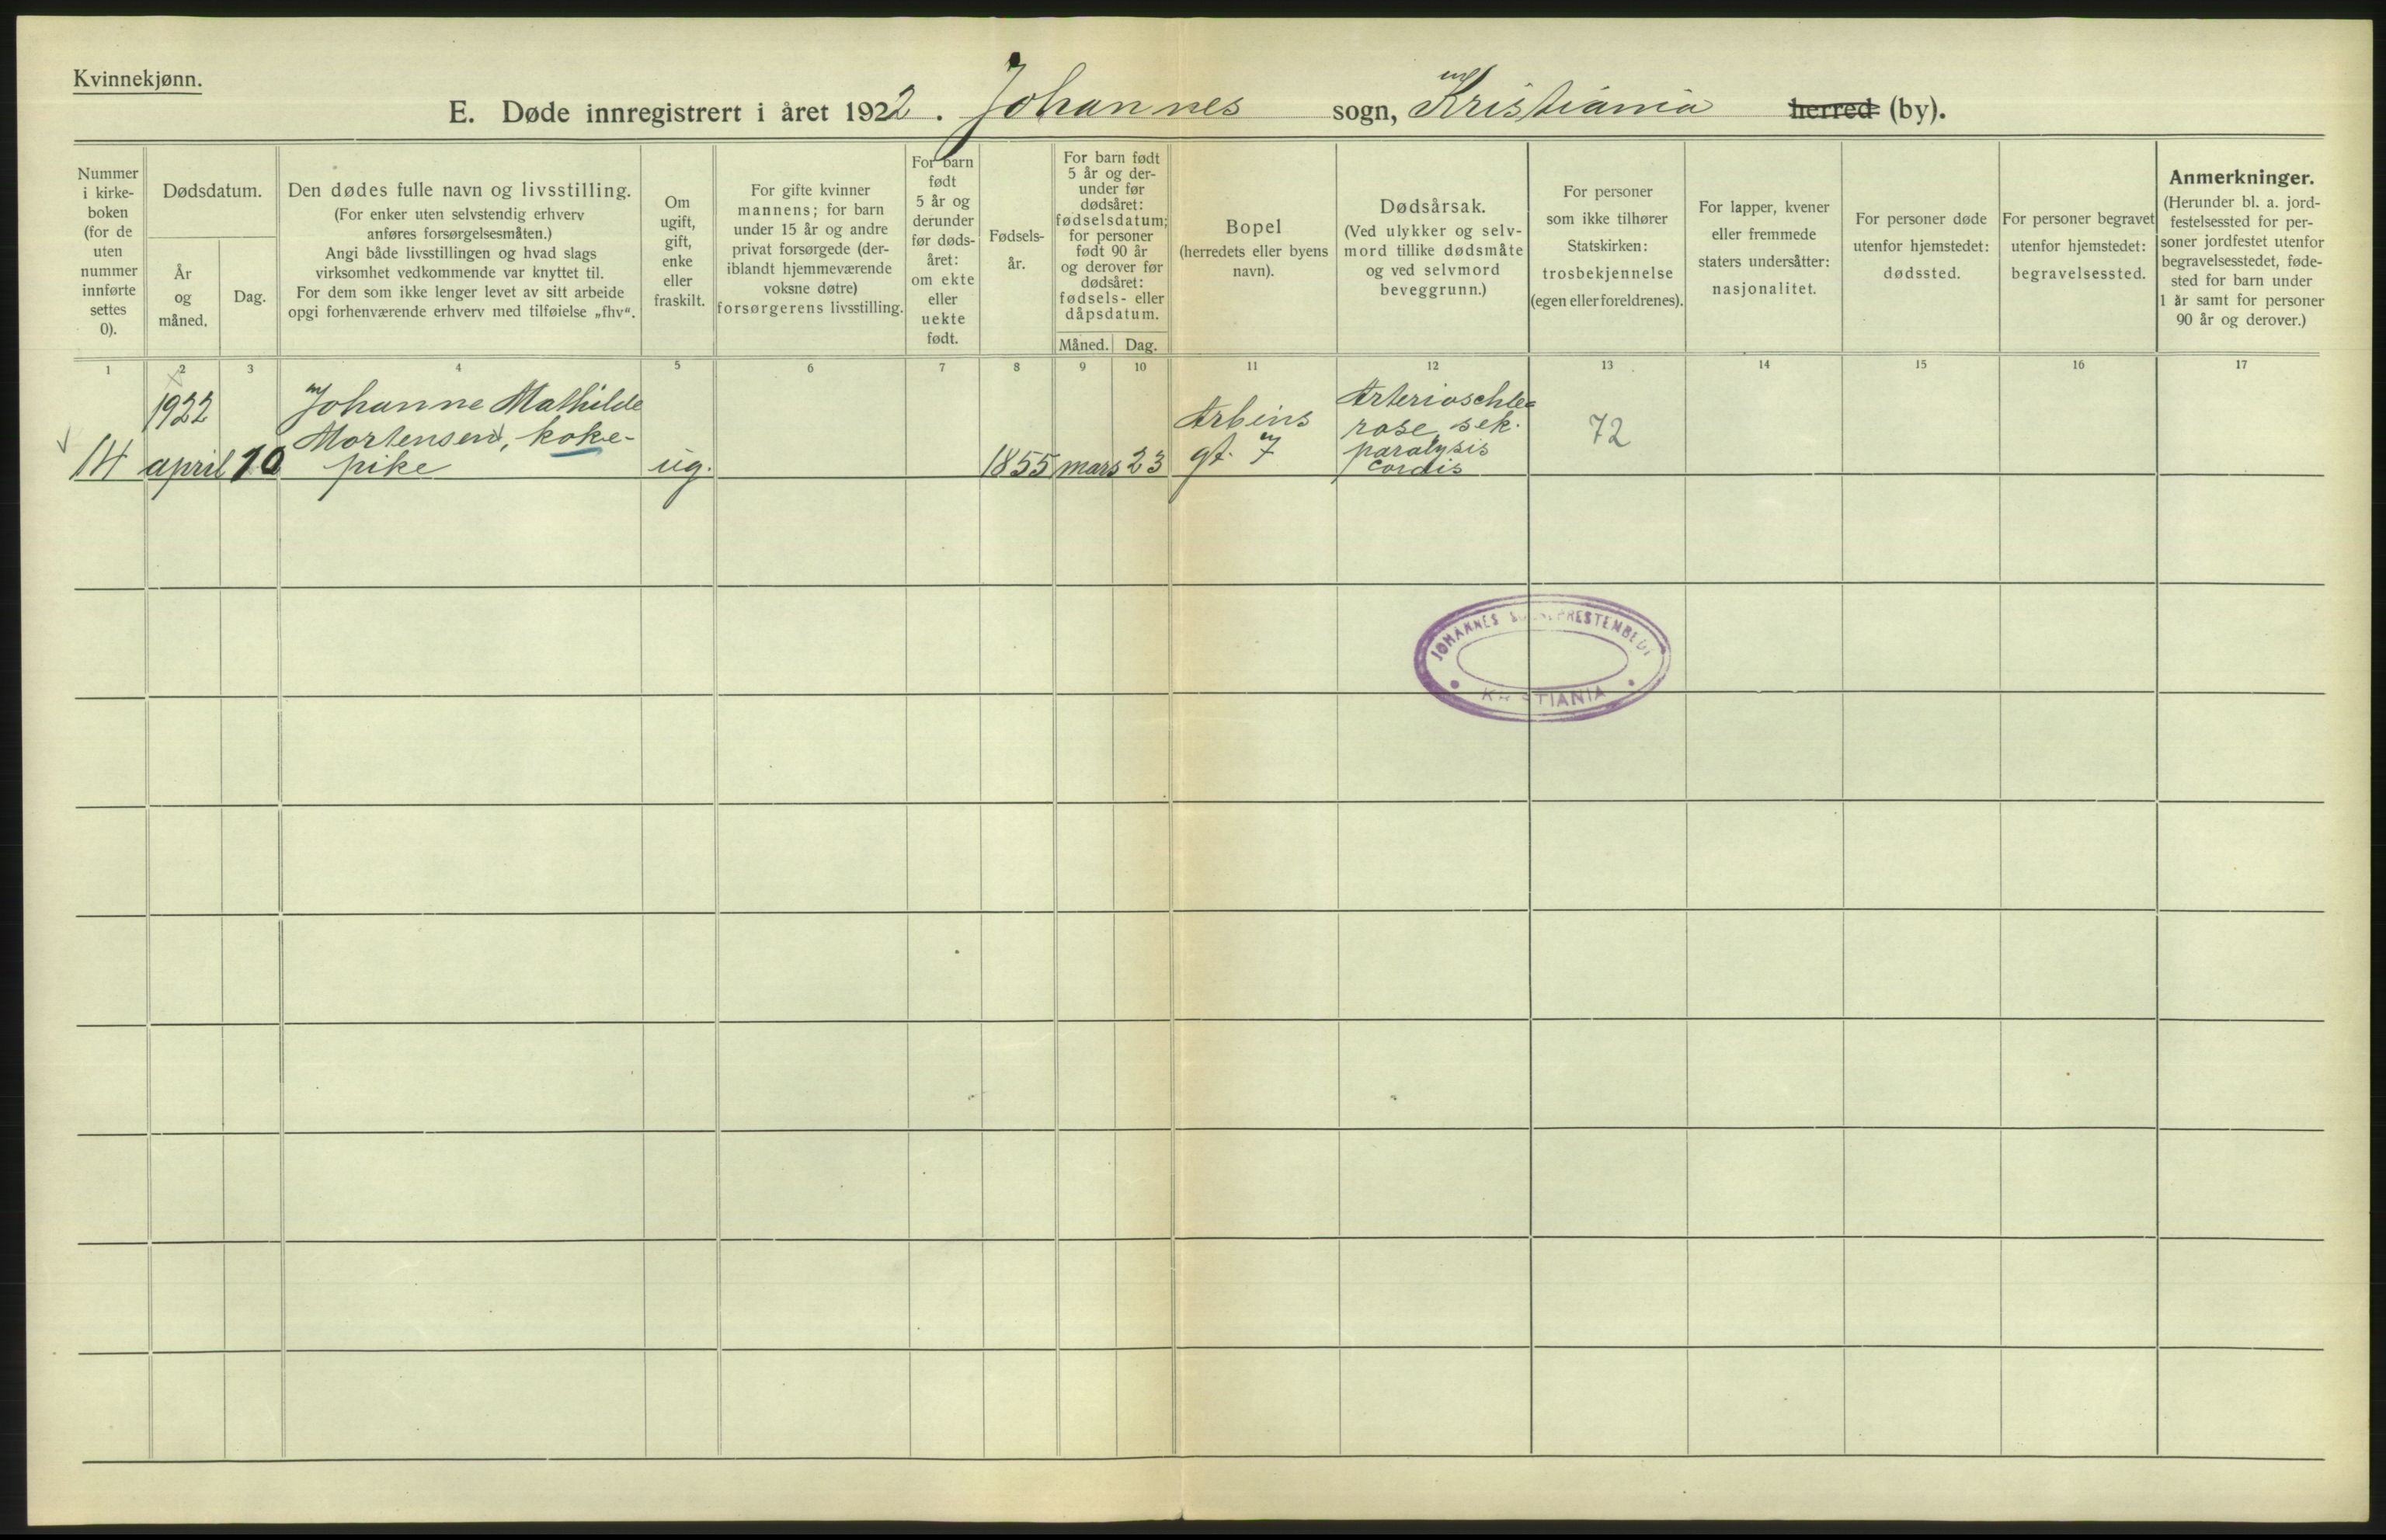 Kvinnekjønn.
E. Døde innregistrert i året 1922. Johannes sogn, Kristiania herred (by).
Nummer
i kirke-
boken
(for de
uten
nummer
innførte
settes
0).
Dødsdatum.
År
og
måned.
Dag.
Den dødes fulle navn og livsstilling.
(For enker uten selvstendig erhverv
anføres forsørgelsesmåten.)
Angi både livsstillingen og hvad slags
virksomhet vedkommende var knyttet til.
For dem som ikke lenger levet av sitt arbeide
opgi forhenværende erhverv med tilføielse „fhv“.
Om
ugift,
gift,
enke
eller
fraskilt.
For gifte kvinner
mannens; for barn
under 15 år og andre
privat forsørgede (der-
iblandt hjemmeværende
voksne døtre)
forsørgerens livsstilling.
For barn
født
5 år og
derunder
før døds-
året:
om ekte
eller
uekte
født.
Fødsels-
år.
For barn født
5 år og der-
under før
dødsåret:
fødselsdatum;
for personer
født 90 år
og derover før
dødsåret:
fødsels- eller
dåpsdatum.
Måned. Dag.
Bopel
(herredets eller byens
navn).
Dødsårsak.
(Ved ulykker og selv-
mord tillike dødsmåte
og ved selvmord
beveggrunn.)
For personer
som ikke tilhører
Statskirken:
trosbekjennelse
(egen eller foreldrenes).
For lapper, kvener
eller fremmede
staters undersåtter:
nasjonalitet.
For personer døde
utenfor hjemstedet:
dødssted.
For personer begravet
utenfor hjemstedet:
begravelsessted.
Anmerkninger.
(Herunder bl. a. jord-
festelsessted for per-
soner jordfestet utenfor
begravelsesstedet, føde-
sted for barn under
1 år samt for personer
90 år og derover.)
1 2 3 4 5 6 7 8 9 10 11 12 13 14 15 16 17
14
1922
april 10
Johanne Mathilde
Mortensen, koke-
pike
ug.
1855 mars 23
Arbins
gt. 7
Arterioschle-
rose, sek.
paralysis
cordis
72
JOHANNES SOGNEPRESTEMBEDE
KRISTIANIA